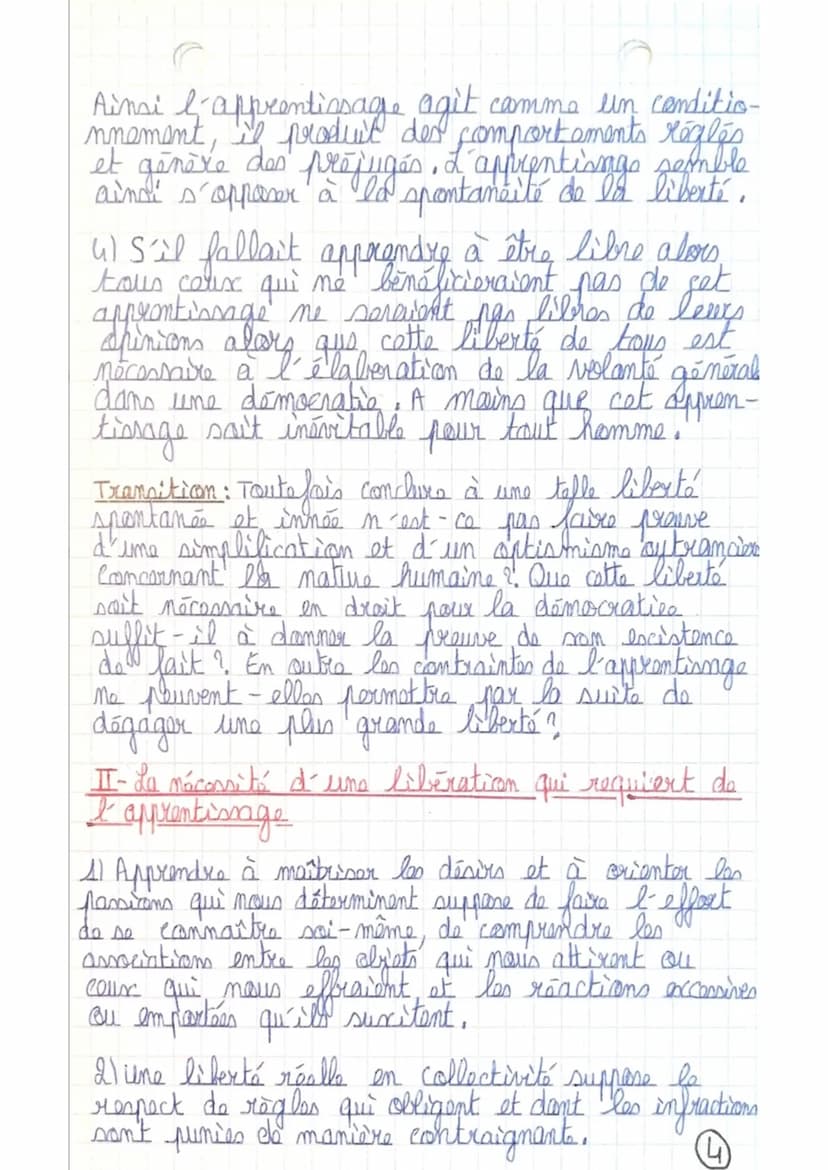 Ainsi l'apprentissage agit comme un conditio-
nnement, il produit des comportements réglés
et génère des préjugés. L'apprentissage semble
ainsi s'opposer à la spontanéité de la liberté.
4) S'il fallait apprendre à être libre alors
tous ceux qui ne bénéficieraient pas de cet
apprentissage ne seraient pas libres de leurs
opinions alors que cette liberté de tous est
nécessaire à l'élaboration de la volonté général
dans une démocratie. A moins que cet appren-
tissage soit inévitable pour tout homme.
Transition : Toutefois conclure à une telle liberté
spontanée et innée n'est-ce pas faire preuve
d'une simplification et d'un optismisme outrancière
concernant la nature humaine ? Que cette liberté
soit nécessaire en droit pour la démocratie
suffit-il à donner la preuve de son existence
de fait ? En outre les contraintes de l'apprentissage
ne peuvent-elles permettre par la suite de
dégager une plus grande liberté ?
II- La nécessité d'une libération qui requiert de
l'apprentissage
1) Apprendre à maîtriser les désirs et à orienter les
passions qui nous déterminent suppose de faire l'effort
de se connaître soi-même, de comprendre les
associations entre les objets qui nous attirent ou
ceux qui nous effraient et les réactions excessives
ou emportées qu'ils suscitent.
2) Une liberté réelle en collectivité suppose le
respect de règles qui obligent et dont les infractions
sont punies de manière contraignante.
4